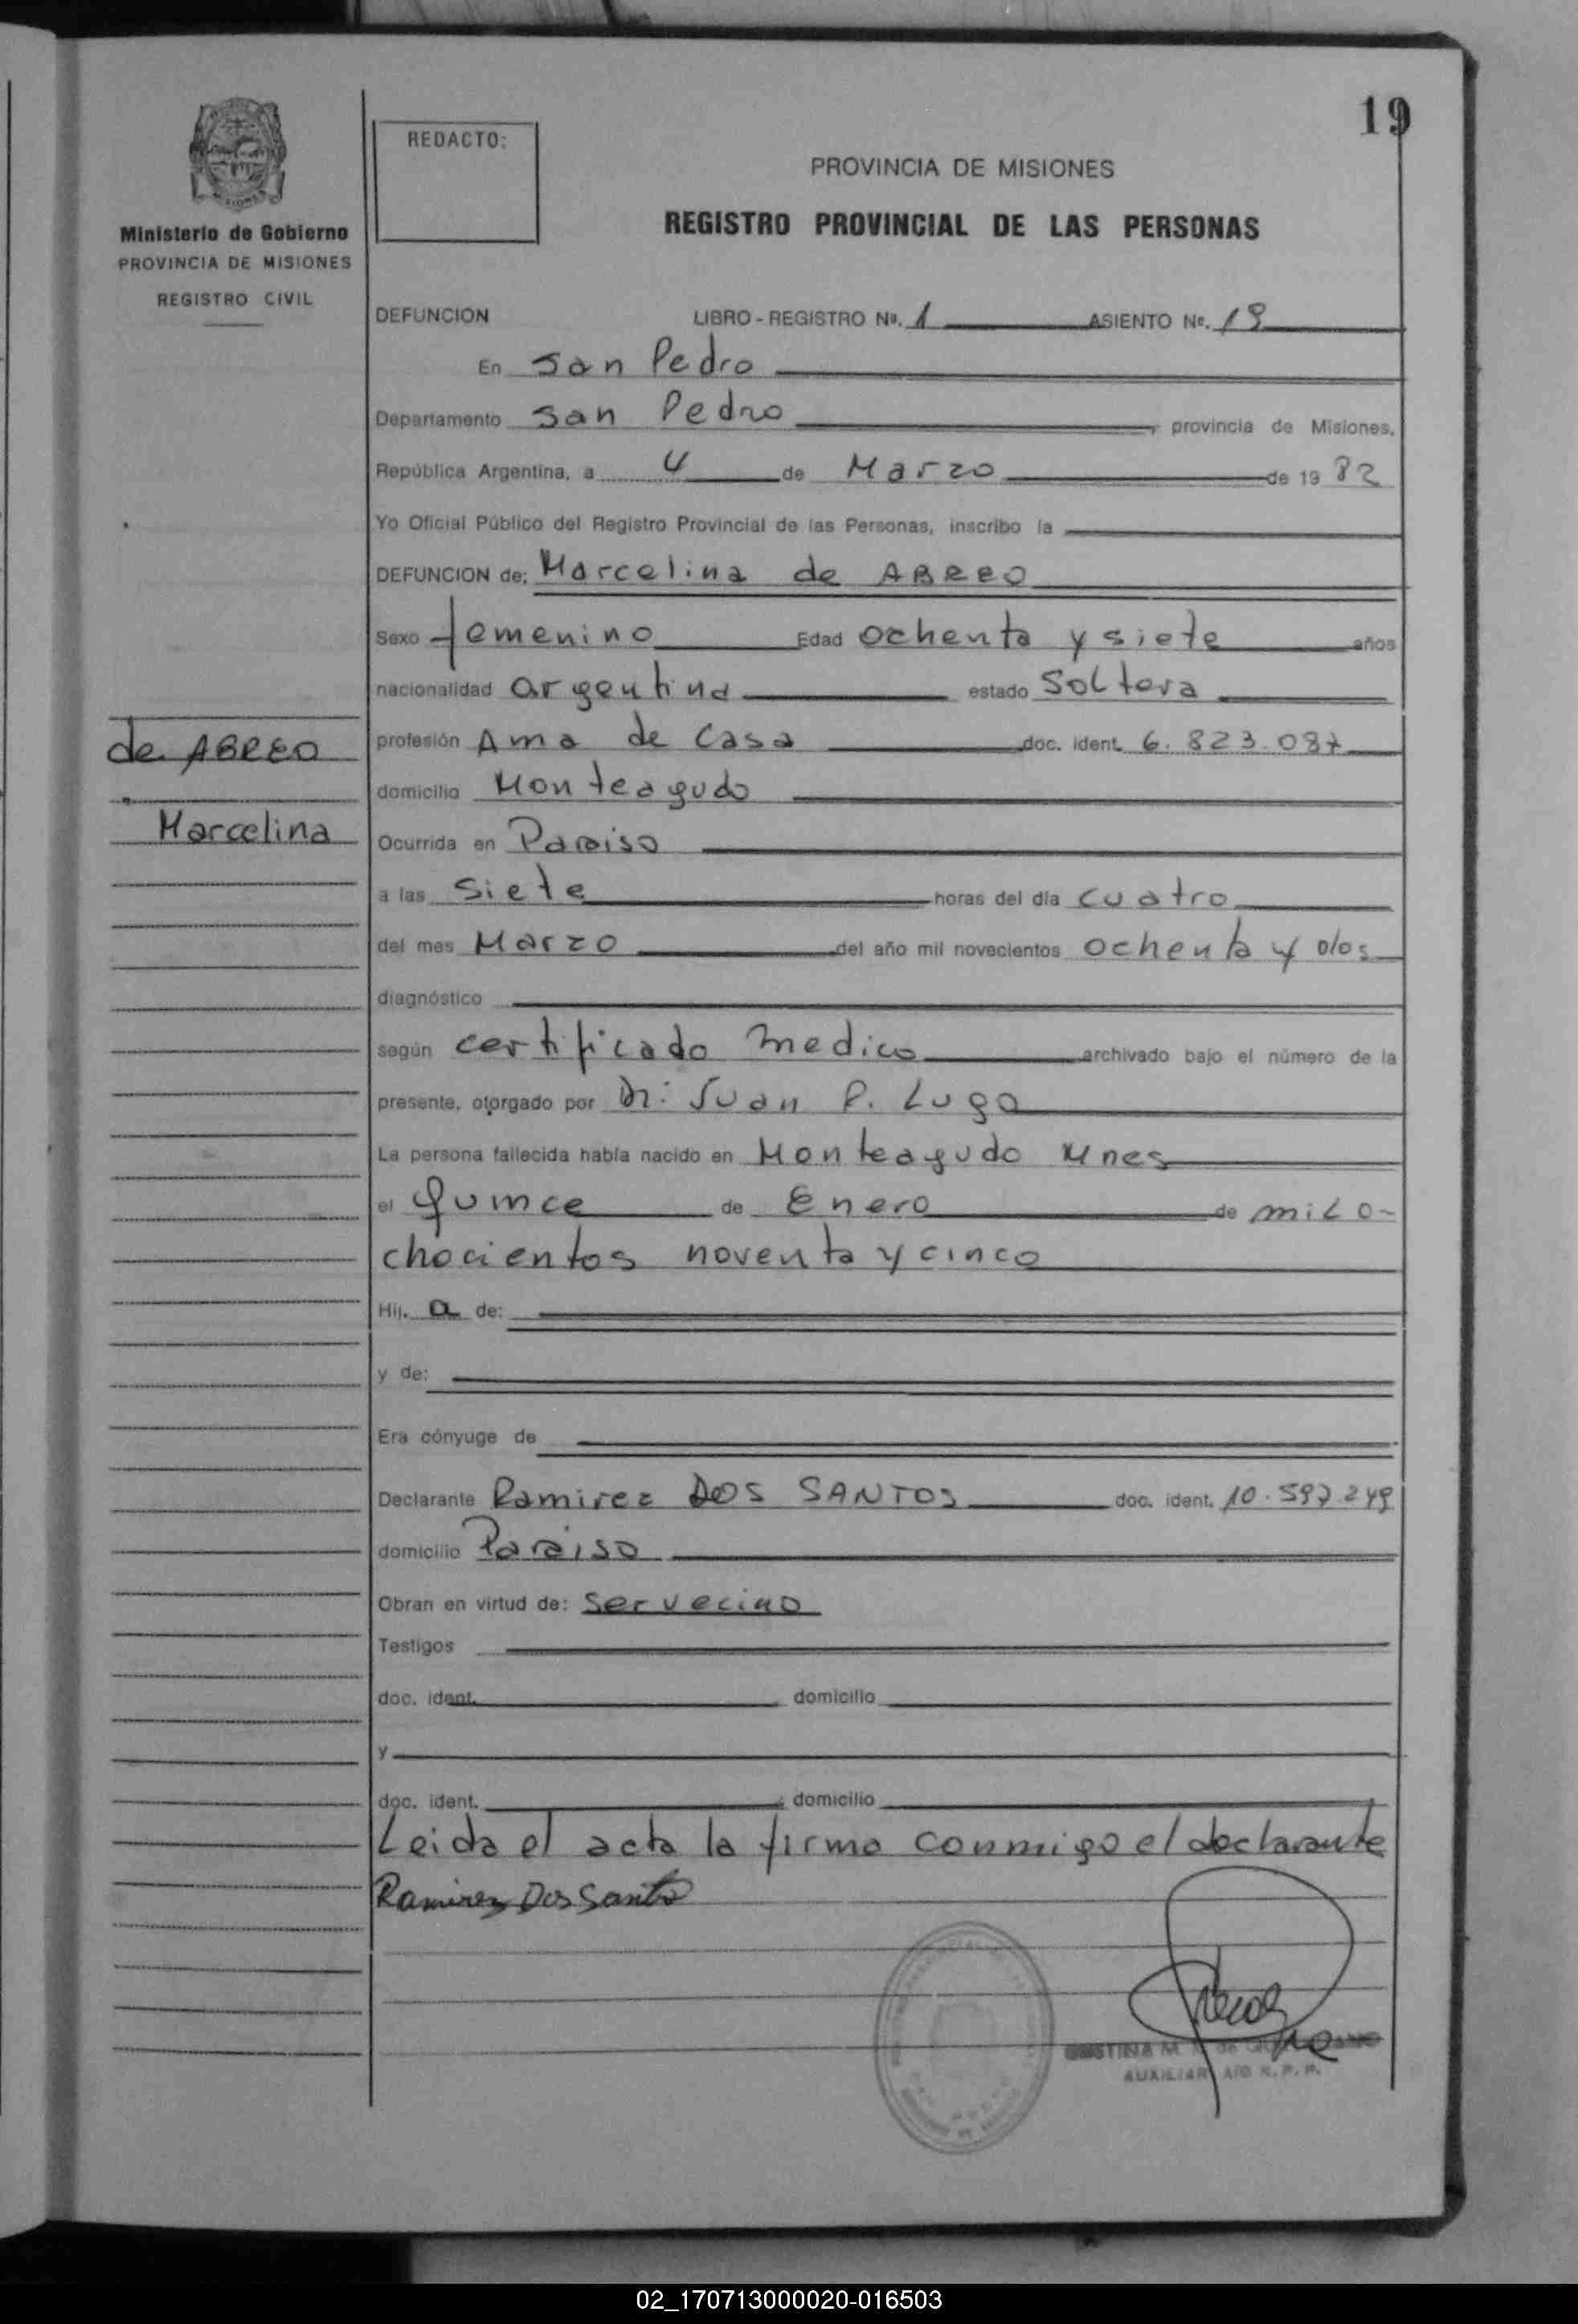 19
REDACTO:
PROVINCIA DE MISIONES
REGISTRO PROVINCIAL DE LAS PERSONAS
MISIONES
Ministerio de Gobierno
PROVINCIA DE MISIONES
REGISTRO CIVIL
DEFUNCION LIBRO - REGISTRO Nº. 1 ASIENTO Nº. 19
En San Pedro
Departamento San Pedro, provincia de Misiones,
República Argentina, a 4 de Marzo de 19 82
Yo Oficial Público del Registro Provincial de las Personas, inscribo la
DEFUNCION de: Marcelina de ABREO
Sexo femenino Edad ochenta y siete años
nacionalidad argentina estado Soltera
de ABREO
profesión Ama de Casa doc. ident. 6.823.087
domicilio Monteagudo
Marcelina
Ocurrida en Paraiso
a las Siete horas del día cuatro
del mes Marzo del año mil novecientos ochenta y dos
diagnóstico
según certificado medico archivado bajo el número de la
presente, otorgado por Dr: Juan P. Lugo
La persona fallecida había nacido en Monteagudo Mnes
el quince de Enero de mil o-
chocientos noventa y cinco
Hij. a de:
y de:
Era cónyuge de
Declarante Ramirez DOS SANTOS doc. ident. 10.597.249
domicilio Paraiso
Obran en virtud de: ser vecino
Testigos
doc. ident. domicilio
y
doc. ident. domicilio
Leida el acta la firma conmigo el declarante
Ramirez Dos Santos
AUXILIAR A/C R.P.P.
02_170713000020-016503